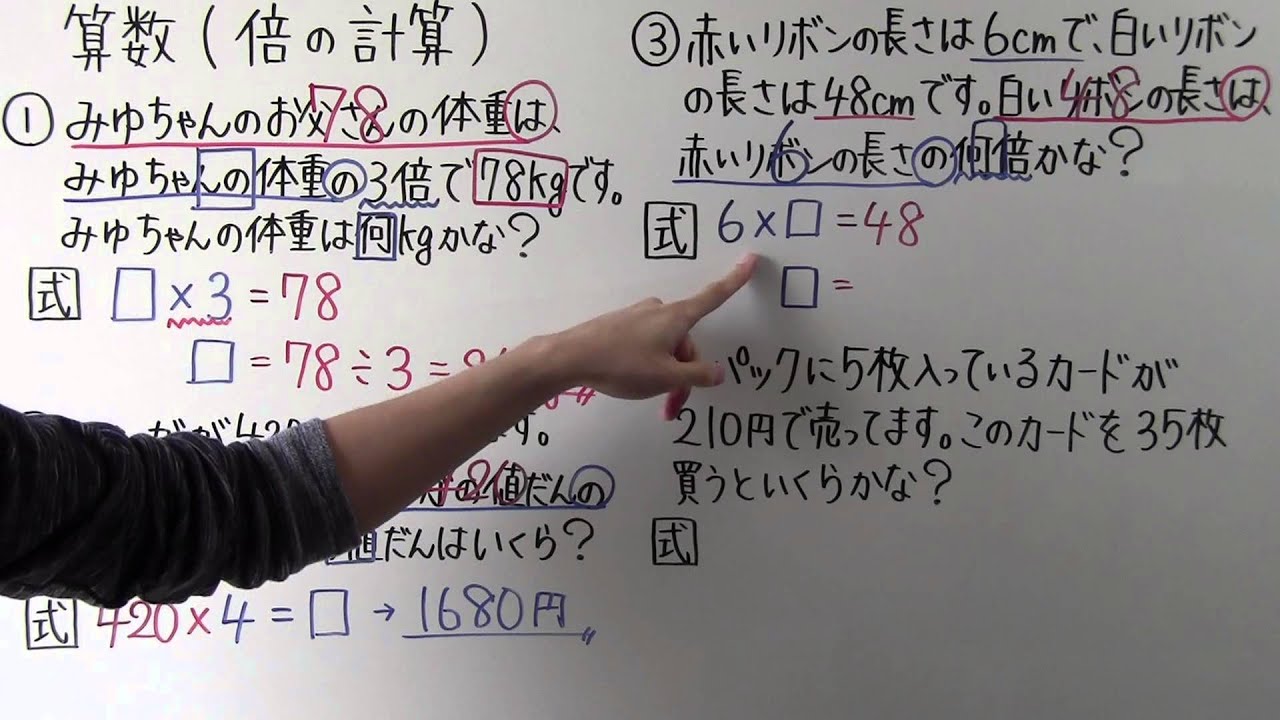 算数(倍の計算)
① みゆちゃんのお父さんの体重は、
78
みゆちゃんの体重の3倍で78kgです。
みゆちゃんの体重は何kgかな?
式 □×3=78
□=78÷3=
が420 す。
の値だんの
値だんはいくら?
式 420×4=□→1680円
③赤いリボンの長さは6cmで、白いリボン
の長さは48cmです。白いリボンの長さは、
48
赤いリボンの長さの何倍かな?
6
式 6×□=48
□=
パックに5枚入っているカードが
210円で売ってます。このカードを35枚
買うといくらかな?
式